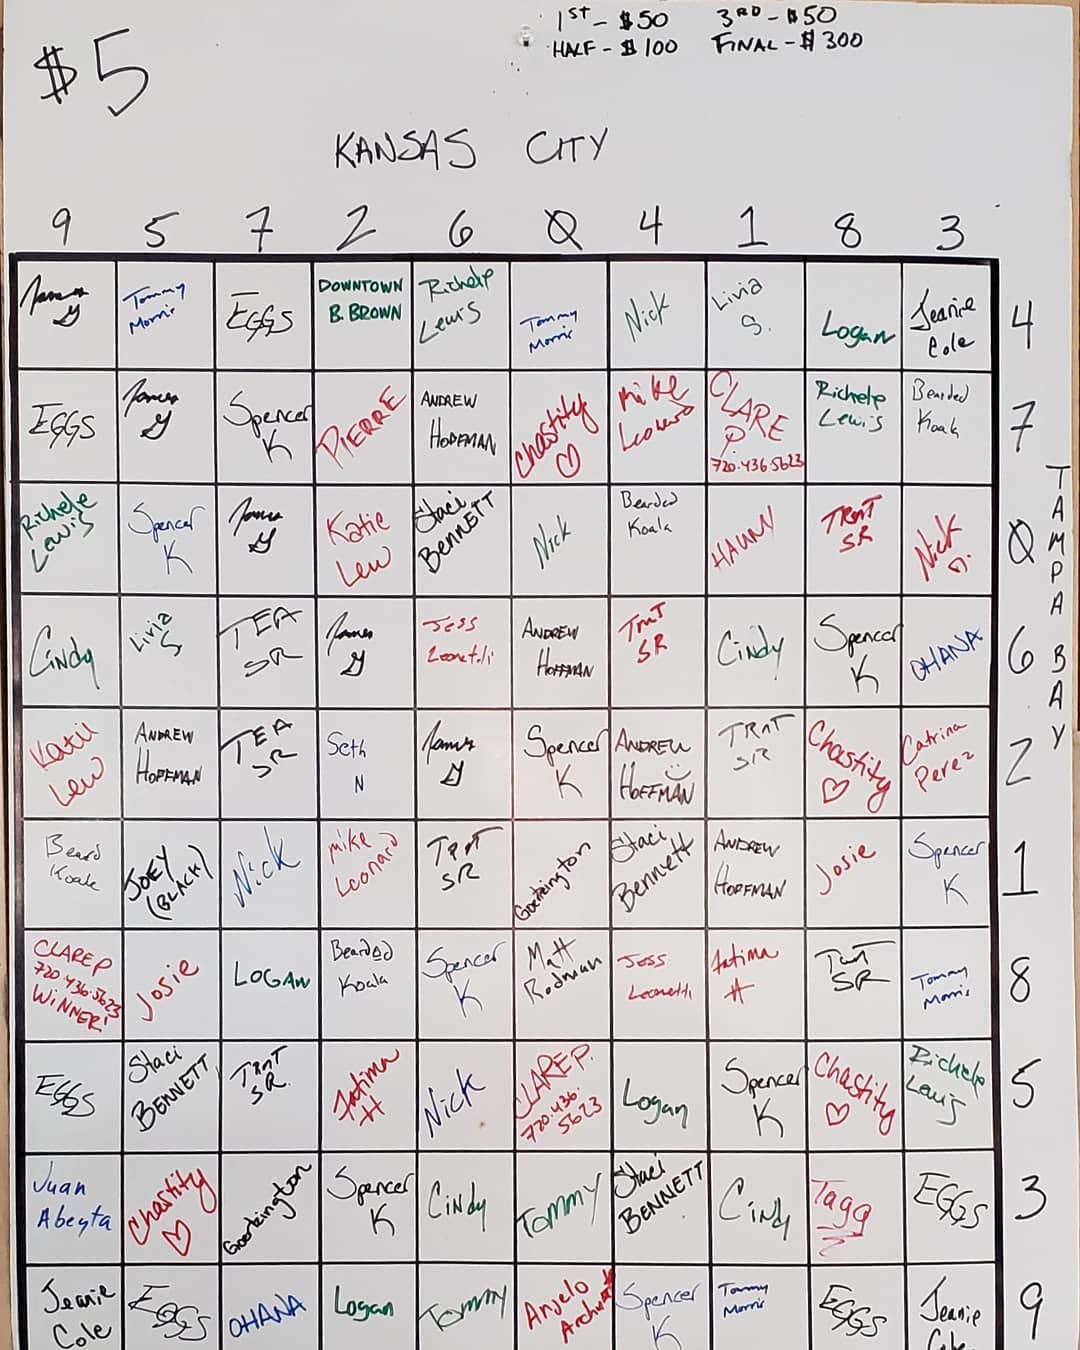 $5
1ST - $50 3RD - $50
HALF - $100 FINAL - $300
KANSAS CITY
9 5 7 2 6 0 4 1 8 3
James G Tommy Morris EGGS DOWNTOWN B. BROWN Richele Lewis Tommy Morris Nick Livia S. Logan Jeanie Cole 4
EGGS James G Spencer K PIERRE ANDREW HOFFMAN Chastity ♡ Mike Leonard CLARE P 720.436.5623 Richele Lewis Bearded Koala 7
Richele Lewis Spencer K James G Katie Lew Staci BENNETT Nick Bearded Koala HAUNN TRNT SR Nick D. 0
Cindy Livia S TEA SR James G Jess Leonetti ANDREW HOFFMAN TRNT SR Cindy Spencer K OHANA 6
Katie Lew ANDREW HOFFMAN TEA SR Seth N James G Spencer K ANDREW HOFFMAN TRNT SR Chastity ♡ Catrina Perez 2
Beard Koala JOEY (BLACH) Nick Mike Leonard TRNT SR Goetzington Staci Bennett ANDREW HOFFMAN Josie Spencer K 1
CLARE P 720.436.5623 WINNER! Josie LOGAN Bearded Koala Spencer K Matt Rodman Jess Leonetti Fatima H TRNT SR Tommy Morris 8
EGGS Staci BENNETT TRNT SR. Fatima H Nick CLARE P. 720.436.5623 Logan Spencer K Chastity ♡ Richele Lewis 5
Juan Abeyta Chastity ♡ Goetzington Spencer K Cindy Tommy Staci BENNETT Cindy Tagg EGGS 3
Jeanie Cole EGGS OHANA Logan Tommy Anjelo Spencer K Tommy Morris EGGS Jeanie Cole 9
TAMPA BAY